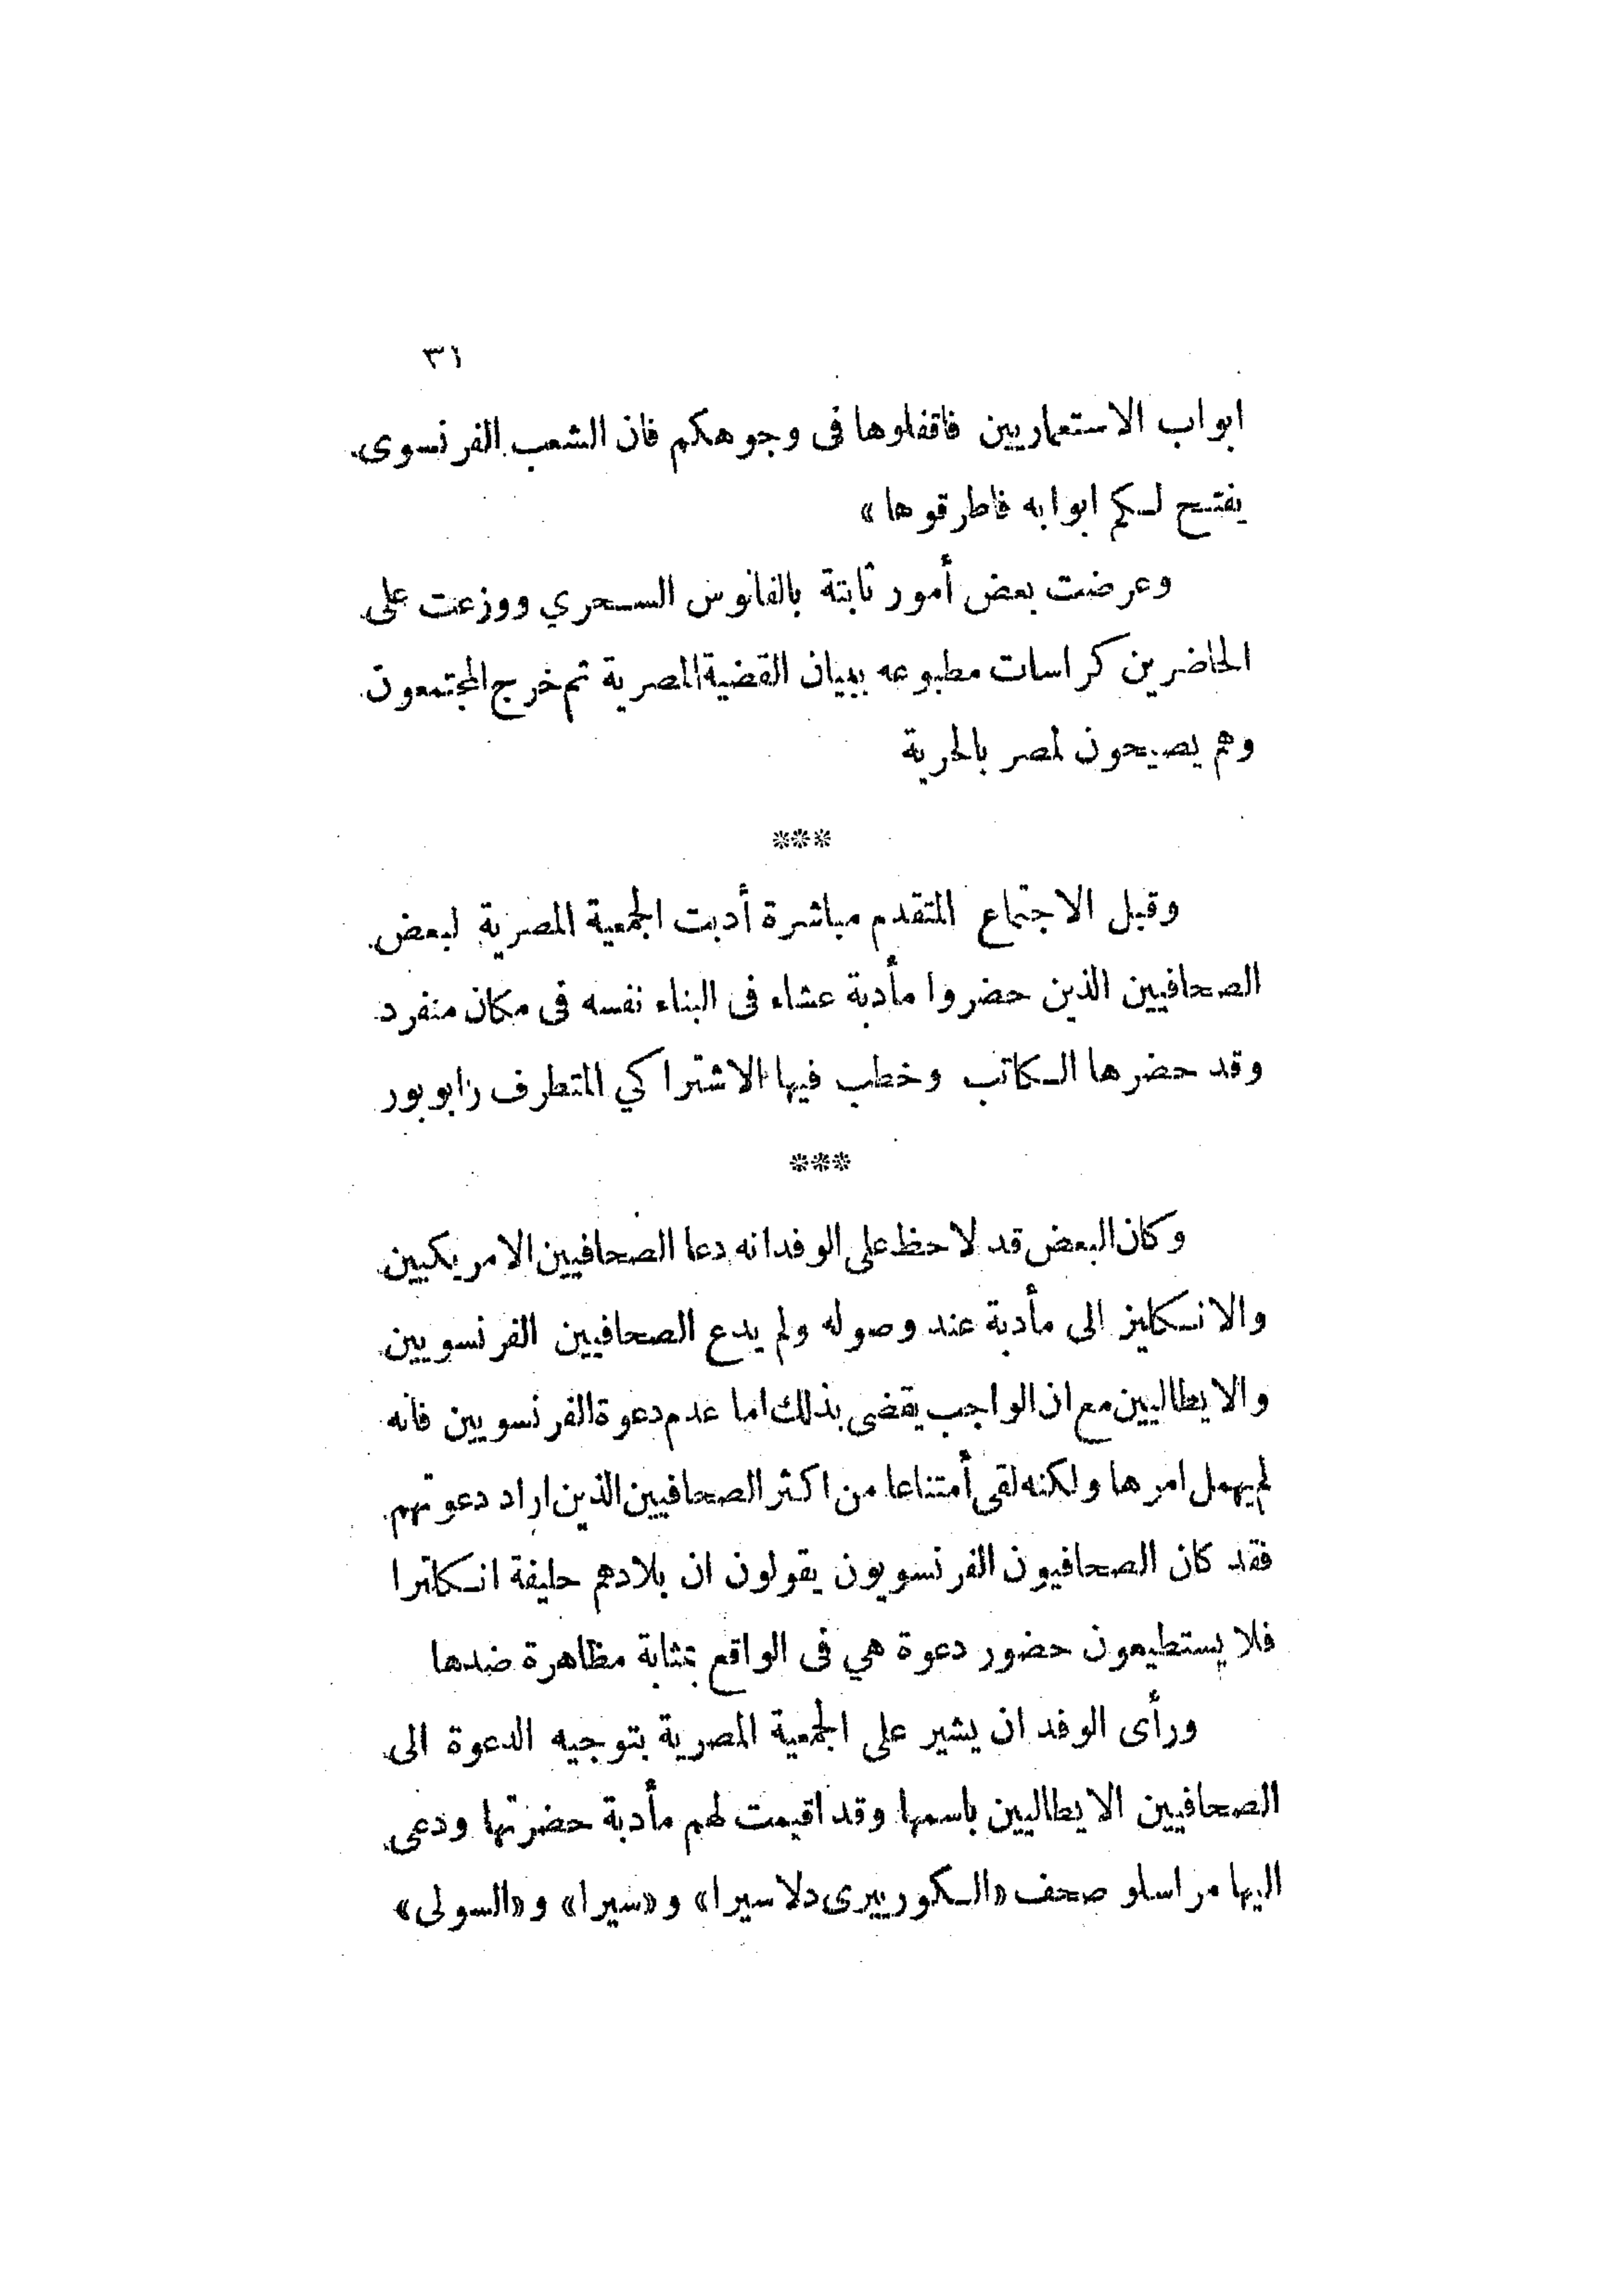 ٣١
ابواب الاستعماريين فاقفلوها فى وجوهكم فان الشعب الفرنسوى
يفتح لكم ابوابه فاطرقوها »
وعرضت بعض أمور ثابتة بالفانوس السحري ووزعت على
الحاضرين كراسات مطبوعه ببيان القضية المصرية ثم خرج المجتمعون
وهم يصيحون لمصر بالحرية
***
وقبل الاجتماع المتقدم مباشرة أدبت الجمعية المصرية لبعض
الصحافيين الذين حضروا مأدبة عشاء فى البناء نفسه فى مكان منفرد
وقد حضرها الكاتب وخطب فيها الاشتراكي المتطرف رابوبور
***
وكان البعض قد لاحظ على الوفد انه دعا الصحافيين الامريكيين
والانكليز الى مأدبة عند وصوله ولم يدع الصحافيين الفرنسويين
والايطاليين مع ان الواجب يقضى بذلك اما عدم دعوة الفرنسويين فانه
لم يهمل امرها ولكنه لقى أمتناعا من اكثر الصحافيين الذين اراد دعوتهم
فقد كان الصحافيون الفرنسويون يقولون ان بلادهم حليفة انكلترا
فلا يستطيعون حضور دعوة هي فى الواقع بمثابة مظاهرة ضدها
ورأى الوفد ان يشير على الجمعية المصرية بتوجيه الدعوة الى
الصحافيين الايطاليين باسمها وقد اقيمت لهم مأدبة حضرتها ودعى
اليها مراسلو صحف «الكورييرى دلا سيرا» و«سيرا» و«السولى»